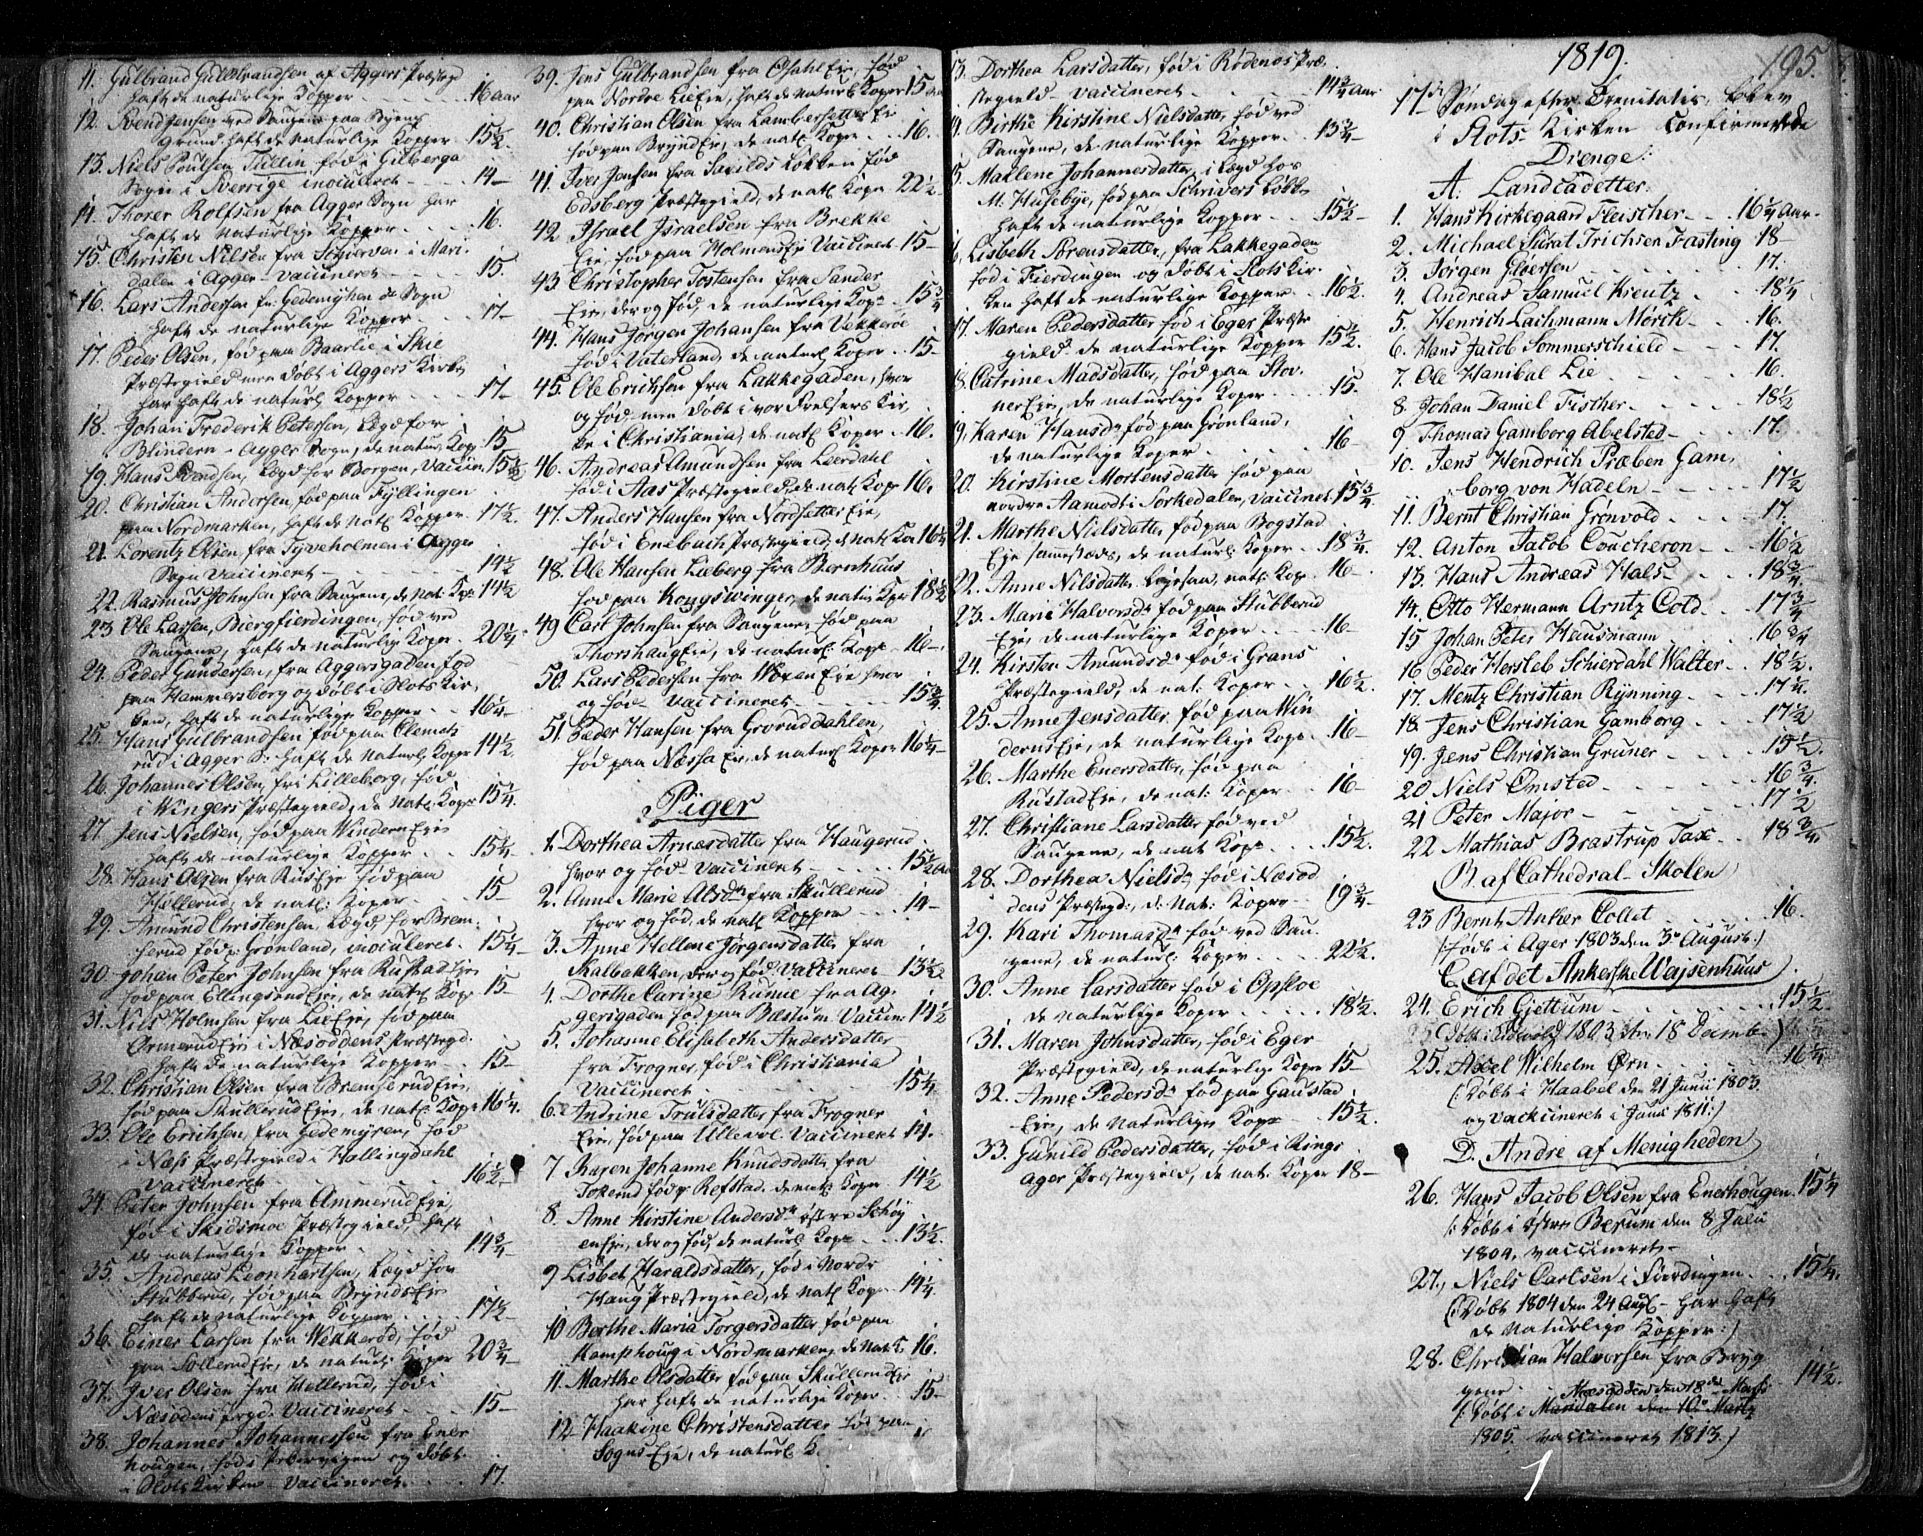 11. Gulbrand Gulbrandsen af Aggers Præstegd
haft de naturlige Kopper - - - 16 aar
12. Svend Jensen ved Saugene paa Myens
grund haft de Naturlige Kopper 15½.
13. Niels Poulsen Tullin, fød i Gilberga
Sogn i Sverrige inoculeret - - - 14 -
14. Thorer Rolfsen fra Agger Sogn har
haft de Naturlige Kopper - - - 16.
15. Christen Nilsen fra Skiervan i Mari-
dalen i Agger - vaccineret - - - 15.
16. Lars Andersen fr. Gedemyhren Sogn
haft de naturlige Kopper - - - 17 -
17. Peder Olsen, fød paa Baarlie i Skie
Præstegield men døbt i Aggers Kirke
har haft de naturl Kopper - - - 17 -
18. Johan Frederik Petersen, Lægd for
Blindern - Agger Sogn, de natur Kop 15
19. Hans Svendsen, Lægd for Borgen, Vaccin. 15½
20. Christian Andersen, fød paa Fyllingen
paa Nordmarken, haft de Nat Kopper 17½.
21. Lorentz Olsen fra Tyveholmen i Agger
Sogn Vaccineret - - - 14½
22. Rasmus Johnsen fra Saugene, de Nat Kop 14½
23 Ole Larsen, Biergfierdingen, fød ved
Saugene, haft de naturlig Kopr - 20¼
24. Peder Gundersen, fra Aggersgaden, fød
paa Hammersborg og Døbt i Slots Kir-
ken, haft de naturlige Kopper - - 16¼
25. Hans Gulbrandsen fød paa Clemets
rud i Agger S. haft de Naturl. Koper 14½
26. Johannes Olsen, fri Lilleborg, fød
i Wingers Præstegield, de Nat Kopr 15¼
27. Jens Nielsen, fød paa Windern Eje
haft de naturlige Kopper - - 15¼
28. Hans Olsen fra Rus Eje fød paa
Hellerud, de nat: Koper - - - 15
29. Amund Christensen, Lægd for Brem-
serud fød p Grønland, inoculeret - 15¼
30. Johan Peter Johnsen fra Rustad Eje
fød paa Ellingsrud Eje, de nat Kopr 15
31. Niels Holmsen fra Lie Eje, fød paa
Ormerud Eje i Næsoddens Præstegd.
haft de naturlige Kopper - - 15
32. Christian Olsen fra Bremserud Eje
fød paa Skullerud Eje, de nat Kopr 16¼.
33. Ole Erichsen, fra Gedemyren, fød
i Næss Præstegield i Hallingdahl
Vaccineret - - - 16½
34. Peter Johnsen fra Ammerud Eje,
fød i Skidsmoe Præstegield, haft
de naturlige Kopper - - - 14¾
35. Andreas Leonhartsen, Lægd for
Stubberud, fød paa Brynds Eje
haft de naturlige Kopper - - 17½
36. Einer Larsen fra Wekkerød, fød
paa Sollerud Eje, de naturl: Koper 20¾
37. Iver Olsen fra Hellerud, fød i
Næsodens prgd. Vaccineret - - - 15 -
38. Johannes Johannessen fra Ener
hougen, fød i Pebervigen og døbt
Slots Kirken - Vaccineret - - - 17.
39. Jens Gulbrandsen fra Ofahl Eje, fød
paa Nordre Lie Eje, haft de naturl Koper 15 aar
40. Christian Olsen fra Lambersetter Eje
fød paa Brynd Eje, de nat Kopr - - 16.
41. Iver Jensen fra Saxilds Løkken fød
Edsberg Præstegield, de nat. Kopr 22½
42 Israel Israelsen fra Brekke
Eje, fød paa Holmens Eje Vaccineret - 15 -
43 Christopher Tostensen fra Sander
Eje, der og fød, de naturlige Kopr - 15¾
44. Hans Jørgen Johansen fra Vekkerøe
fød i Vaterland, de naturl Koper - - 15 -
45. Ole Erichsen fra Lakkegaden, hvor
og fød men døbt i vor Frelsers Kir,
ke i Christiania, de natl Koper - 16.
46. Andreas Amundsen fra Leerdahl
fød i Aas Præstegield, de nat Kopr 16.
47. Anders Hansen fra Nordsetter Eje,
fød i Enebach Præstegield, de Nat Kop 16¼
48. Ole Hansen Lieberg fra Bernhuus
fød paa Kongswinger, de natur Kopr 18½
49 Carl Johnsen fra Saugene, fød paa
Thorshaug Eje, de naturl. Kopr - 16 -
50. Lars Pedersen fra Wøyen Eje hvor
og fød - Vaccineret - - - 15¾.
51. Peder Hansen fra Grorud Dahlen,
fød paa Næssa Eje, de naturl Koper 16¼
Piger
1. Dorthea Arnesdatter fra Haugerud
hvor og fød - Vaccineret - - - 15½ aar
2. Anne Marie Olsdr fra Skullerud
hvor og fød, de natl Kopper - - - 14 -
3. Anne Hellene Jørgensdatter fra
Kalbakken, der og fød, Vaccineret - 13½
4. Dorthe Carine Runne fra Ag-
gerigaden fød paa Bærum Vaccin. 14½
5. Johanne Elisabeth Andersdatter
fra Frogner, fød i Christiania
Vaccineret - - - 15¼
6. Andrine Trulsdatter fra Frogner
Eje, fød paa Ullevol. Vaccineret 14.
7 Karen Johanne Knudsdatter fra
Tokerud fød p Refstad. de nat: Kopr 14½
8. Anne Kirstine Andersdr østre Schøy
en Eje, der og fød, de naturl Kopr - - 13½.
9 Lisbet Haraldsdatter, fød i Nordr
Haug Præstegield, de Natl Kopr - 14¼
10 Berthe Maria Torgersdatter fød paa
Kamphoug i Nordmarken, de Nat. K 16.
11. Marthe Olsdatter fød paa Skullerud Eje
har haft de naturlige Koper - - 15 -
12. Haakine Christensdatter fød paa
Sogns Eje, de naturl K.
13. Dorthea Larsdatter, fød i Rødenes Præ,
stegield - vaccineret - - - 14¾ aar
14. Birthe Kirstine Nielsdatter fød ved
Saugene, de naturlige Kopper - - 13¾ -
15. Marlene Johannesdatter, i Lægd hos
M. Husebye, fød paa Schrivers Løkke
haft de naturlige Kopper - - 15½ -
16. Lisbeth Sørensdatter, fra Lakkegaden
fød i Fierdingen og døbt i Slots Kir-
ken haft de naturlige Kopper - - 16½.
17. Maren Pedersdatter fød i Eger Præste
gield de naturlige Kopper 15½.
18. Catrine Madsdatter, fød paa Stov-
ner Eje, de naturlige Koper - - 15.
19. Karen Hansdr fød paa Grønland,
de naturlige Koper - - - 16
20. Kirstine Mortensdatter fød paa
nordre Aamodt i Sørkedalen, vaccinert 15¾
21. Marthe Nielsdatter fød paa Bogstad
Eje sammesteds, de naturl Koper - 18¾.
22. Anne Nilsdatter Løresaa, nat. Kopr - 16 -
23. Marie Halvorsdr fød paa Stubberud
Eje, de naturlige Koper - - - 16 -
24. Kirsten Amundsdr fød i Grans
Præstegield, de nat: Koper - - 16½.
25. Anne Jensdatter fød paa Win
derns Eje, de naturlige Kopr - 16 -
26. Marthe Enersdatter, fød paa
Rustad Eje, de nat: Koper - - 16 -
27. Christiane Larsdatter fød ved
Saugene, de nat Kopr - - - 15½.
28. Dorthea Nielsdr fød i Næsod
dens Præstegd., de Nat: Kopro - 19¾
29. Kari Thomasdr fød ved Sau-
gene, de naturl: Koper - - - 22½.
30. Anne Larsdatter fød i Opsloe
de naturlige Koper - - - 18½.
31. Maren Johnsdatter, fød i Eger
Præstegield, de naturlige Kopr 15 -
32. Anne Pedersdr fød paa Gaustad
Eje, de Naturlige Kopr - - 15½.
33. Gunild Pedersdatter, fød i Rings
ager Præstegield, de nat. Koper 18 -
1819. 195.
17de Søndag efter Trinitatis, bleve
i Slots Kirken Confirmerede
Drenge.
A. Landcadetter.
1. Hans Kirkegaard Fleischer - - - 16¼ aar.
2. Michael Surat Trichsen Fasting 18 -
3. Jørgen Gløersen - - - 17.
4. Andreas Samuel Kreutz - - 18¼
5. Henrich Lachmann Mørch - - 16.
6. Hans Jacob Sommerschield - - 17.
7. Ole Hanibal Lie - - - 16.
8. Johan Daniel Fisther - - - 18½
9 Thomas Gamborg Abelsted - - 17.
10. Jens Hendrich Præben Gam,
borg von Hadeln - - - 17½
11. Bernt Christian Grønvold - - - 17.
12. Anton Jacob Coucheron - - 16½
13. Hans Andreas Hals - - - 18¾
14. Otto Hermann Arntz Cold - - 17¾
15 Johan Peter Hausmann - - - 16¾
16 Peder Hersleb Schierdahl Walter - 18½.
17. Mentz Christian Rynning - - 17¼.
18. Jens Christian Gamborg - - - 17½
19. Jens Christian Gruner - - - 15½.
20 Niels Omsted - - - 16¾
21 Peter Major - - - 17½
22 Mathias Brastrup Tax - - 18¾
B. af Cathedral - Skolen
23 Bernt Anker Collet - - - 16.
(: Født i Ager 1803 den 3de August:)
C. af det Ankerske Wajsenhuus
24. Erich Gjettum - - - 15½.
(Døbt 1803 den 18 Decemb.)
25. Axel Wilhelm Ørn - - - 16¼
(: Døbt i Haabøl den 21 Junii 1803.
og vackcineret i Junii 1811:)
D. Andre af Menigheden
26. Hans Jacob Olsen fra Enerhougen. 15¼
(: Døbt i østre Berum den 8 Julii
1804, vaccineret -
27., Niels Carlsen i Fierdingen - - - 15¼.
(: Døbt 1804 den 24 Augt - har haft
de Naturlige Kopper:)
28. Christian Halvorsen fra Bryg
gene - Næsodden den 18de Marts 14½.
(: Døbt i Maridalen den 10de Martz
1805. vaccineret 1813.)
1